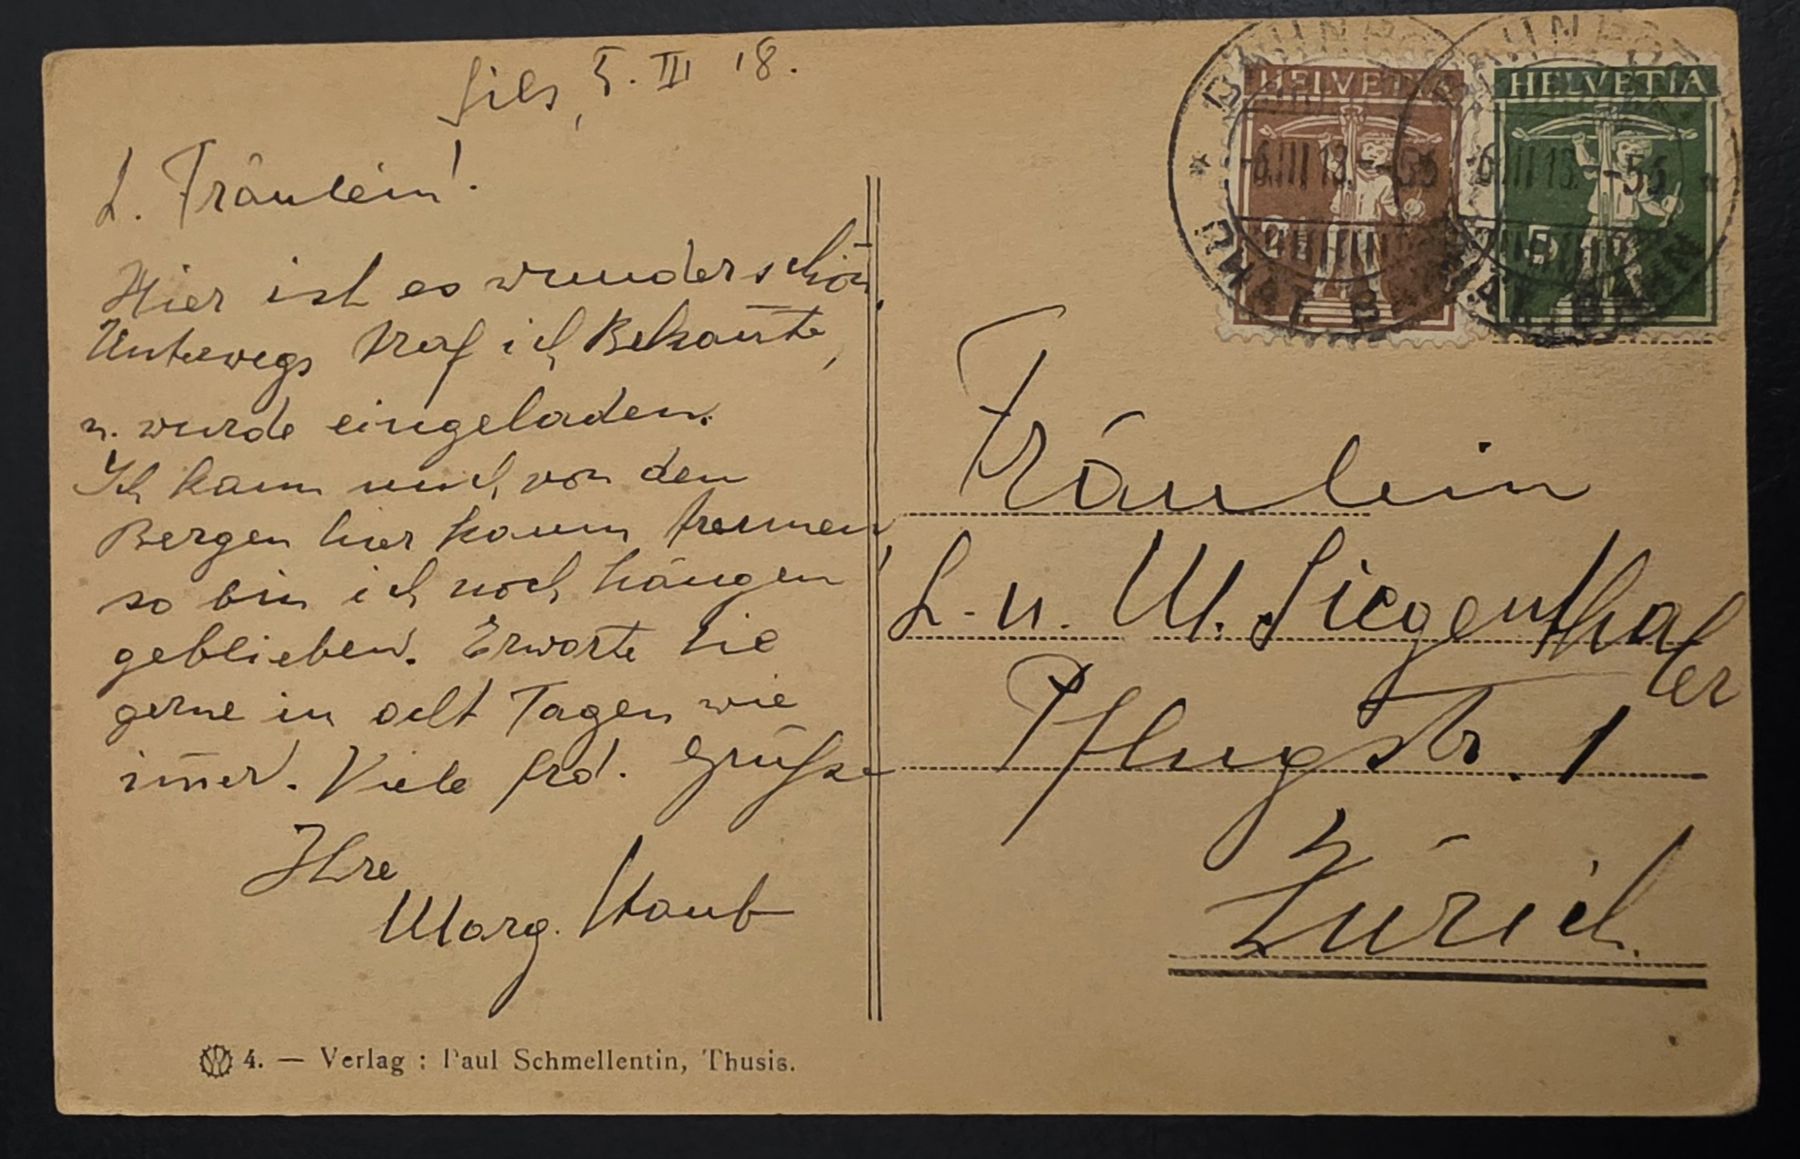 Sils, 5. III 18.
L. Fräulein!
Hier ist es wunderschön.
Unterwegs traf ich Bekan̄te,
u. wurde eingeladen.
Ich kann mich von den
Bergen hier kaum trennen
so bin ich noch hängen
geblieben. Erwarte Sie
gerne in acht Tagen wie
im̄er. Viele frd. Grüsse
Ihre
Marg. Staub
4. — Verlag : Paul Schmellentin, Thusis.
HELVETIA
HELVETIA
5
-6.III 18.--5
-6.III 18.--5
AMBULANT
Fräulein
L. u. M. Siegenthaler
Pflugstr. 1
Zürich.